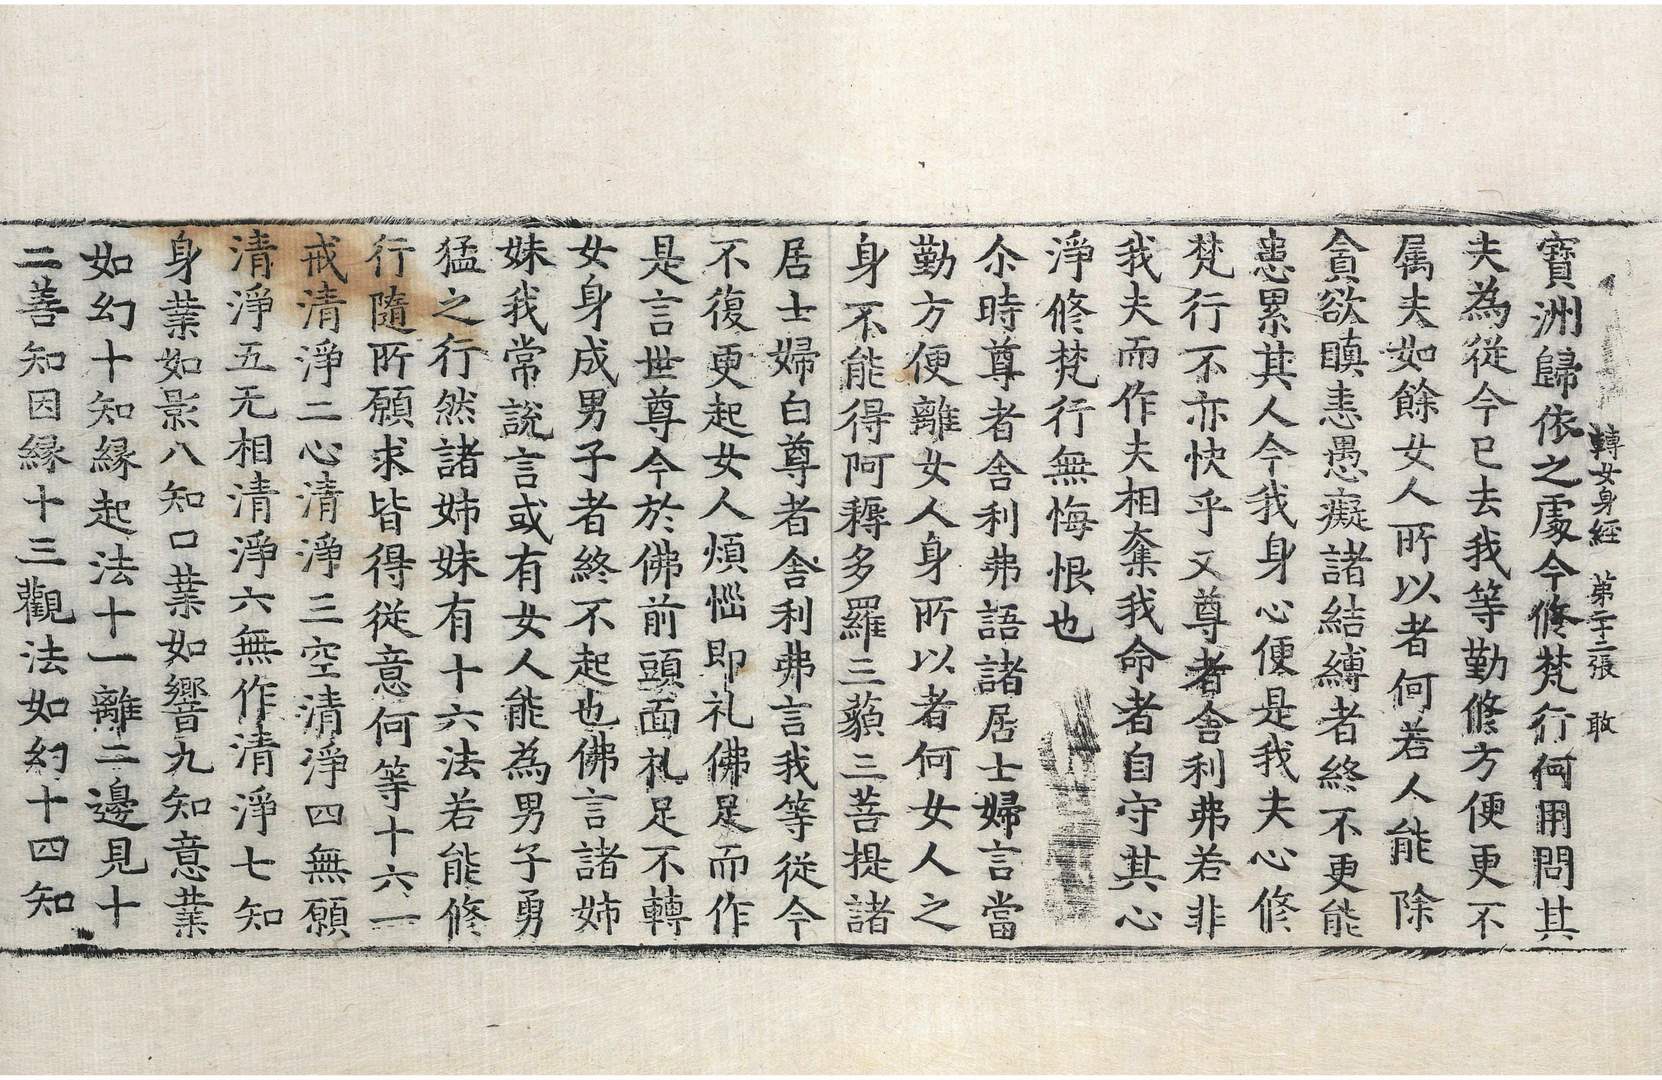 轉女身經 第二十二張 敢
寶洲歸依之處今修梵行何用問其
夫為從今已去我等勤修方便更不
属夫如餘女人所以者何若人能除
貪欲瞋恚愚癡諸結縛者終不更能
患累其人今我身心便是我夫心修
梵行不亦快乎又尊者舍利弗若非
我夫而作夫相奪我命者自守其心
淨修梵行無悔恨也
尒時尊者舍利弗語諸居士婦言當
勤方便離女人身所以者何女人之
身不能得阿耨多羅三藐三菩提諸
居士婦白尊者舍利弗言我等從今
不復更起女人煩惱即礼佛足而作
是言世尊今於佛前頭面礼足不轉
女身成男子者終不起也佛言諸姉
妹我常說言或有女人能為男子勇
猛之行然諸姉妹有十六法若能修
行隨所願求皆得從意何等十六一
戒清淨二心清淨三空清淨四無願
清淨五无相清淨六無作清淨七知
身業如影八知口業如響九知意業
如幻十知縁起法十一離二邊見十
二善知因縁十三觀法如幻十四知